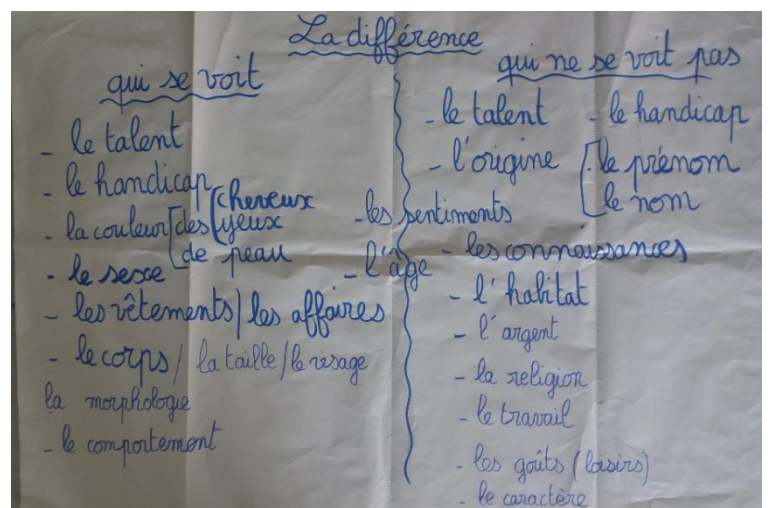 La différence
qui se voit
- le talent
- le handicap
- la couleur des cheveux
yeux
de peau
- le sexe
- les vêtements/les affaires
- le corps/la taille/le visage
la morphologie
- le comportement
- les sentiments
- l'âge
qui ne se voit pas
- le talent - le handicap
- l'origine - le prénom
le nom
- les connaissances
- l'habitat
- l'argent
- la religion
- le travail
- les goûts (loisirs)
- le caractère